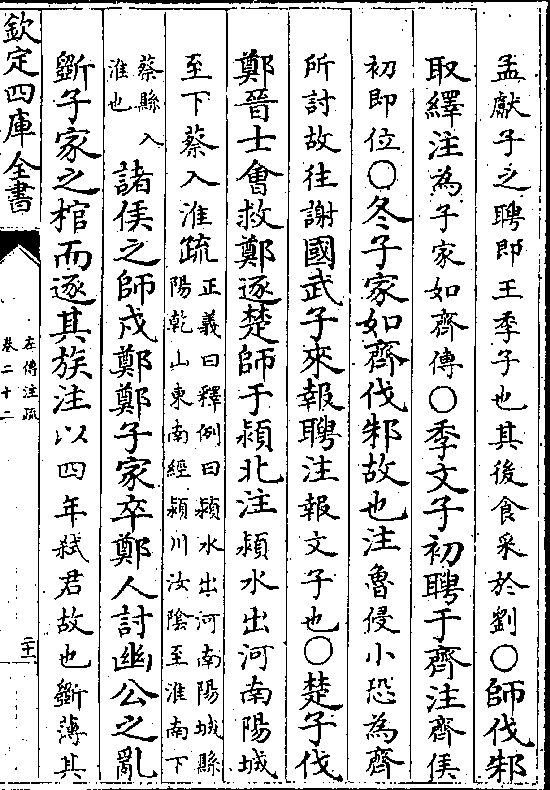 孟獻子之聘即王季子也其後食采於劉○師伐邾
取繹注為子家如齊傳○季文子初聘于齊注齊侯
初即位○冬子家如齊伐邾故也注魯侵小恐為齊
所討故往謝國武子來報聘注報文子也○楚子伐
鄭晉士會救鄭逐楚師于潁北注潁水出河南陽城
至下蔡入淮疏正義曰釋例曰潁水出河南陽城縣
陽乾山東南經潁川汝陰至淮南下
蔡縣入
淮也
諸侯之師戍鄭鄭子家卒鄭人討幽公之亂
斲子家之棺而逐其族注以四年弒君故也斲薄其
欽定四庫全書
左傳注疏
卷二十二
二十一